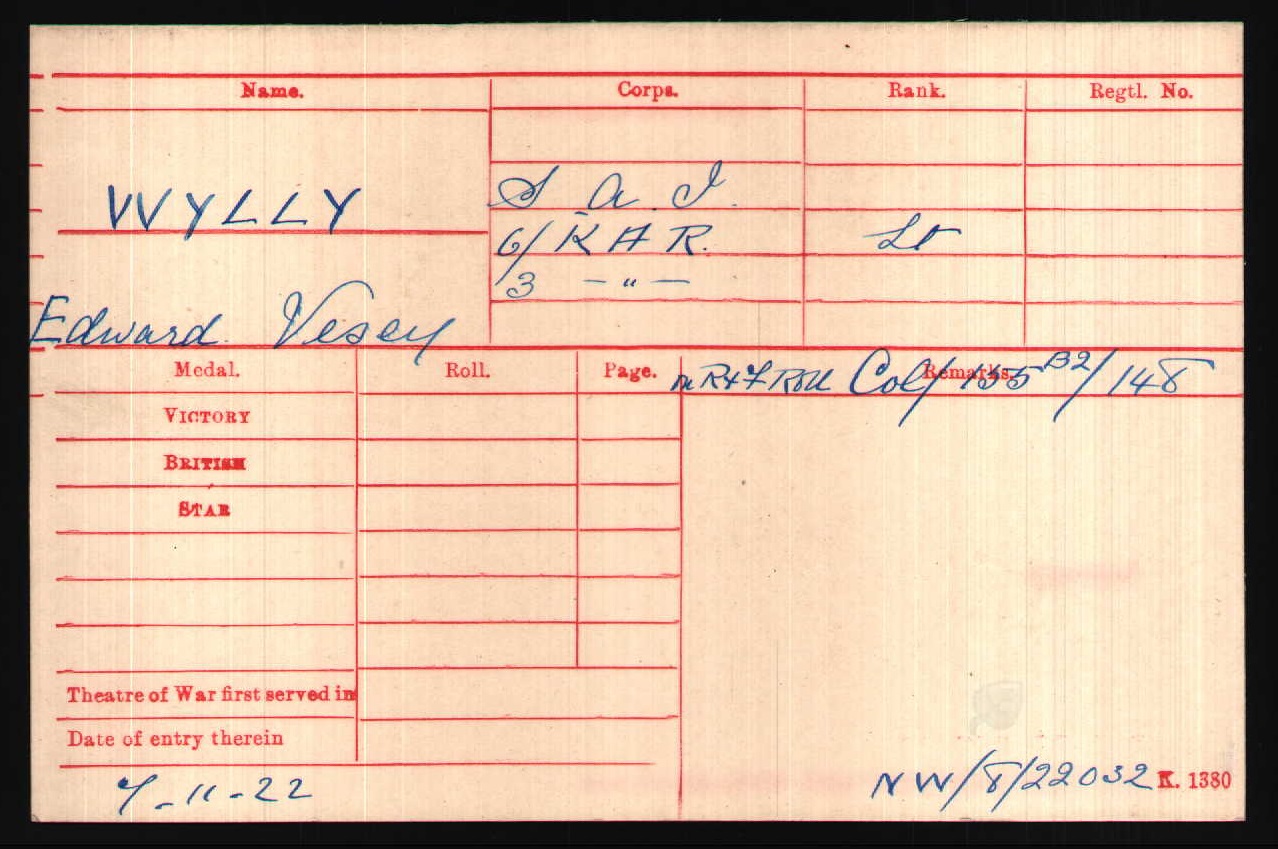 Name. Corps. Rank. Regtl. No.
WYLLY S. A. I.
6/ K A R. Lt
3 — " —
Edward Vesey
Medal. Roll. Page. Remarks.
R & F Roll Col/155 B2/148
VICTORY
BRITISH
STAR
Theatre of War first served in
Date of entry therein
7-11-22 NW/8/22032 K. 1380